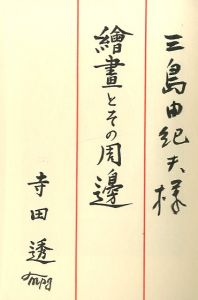 三島由紀夫様
繪畫とその周邊
寺田透